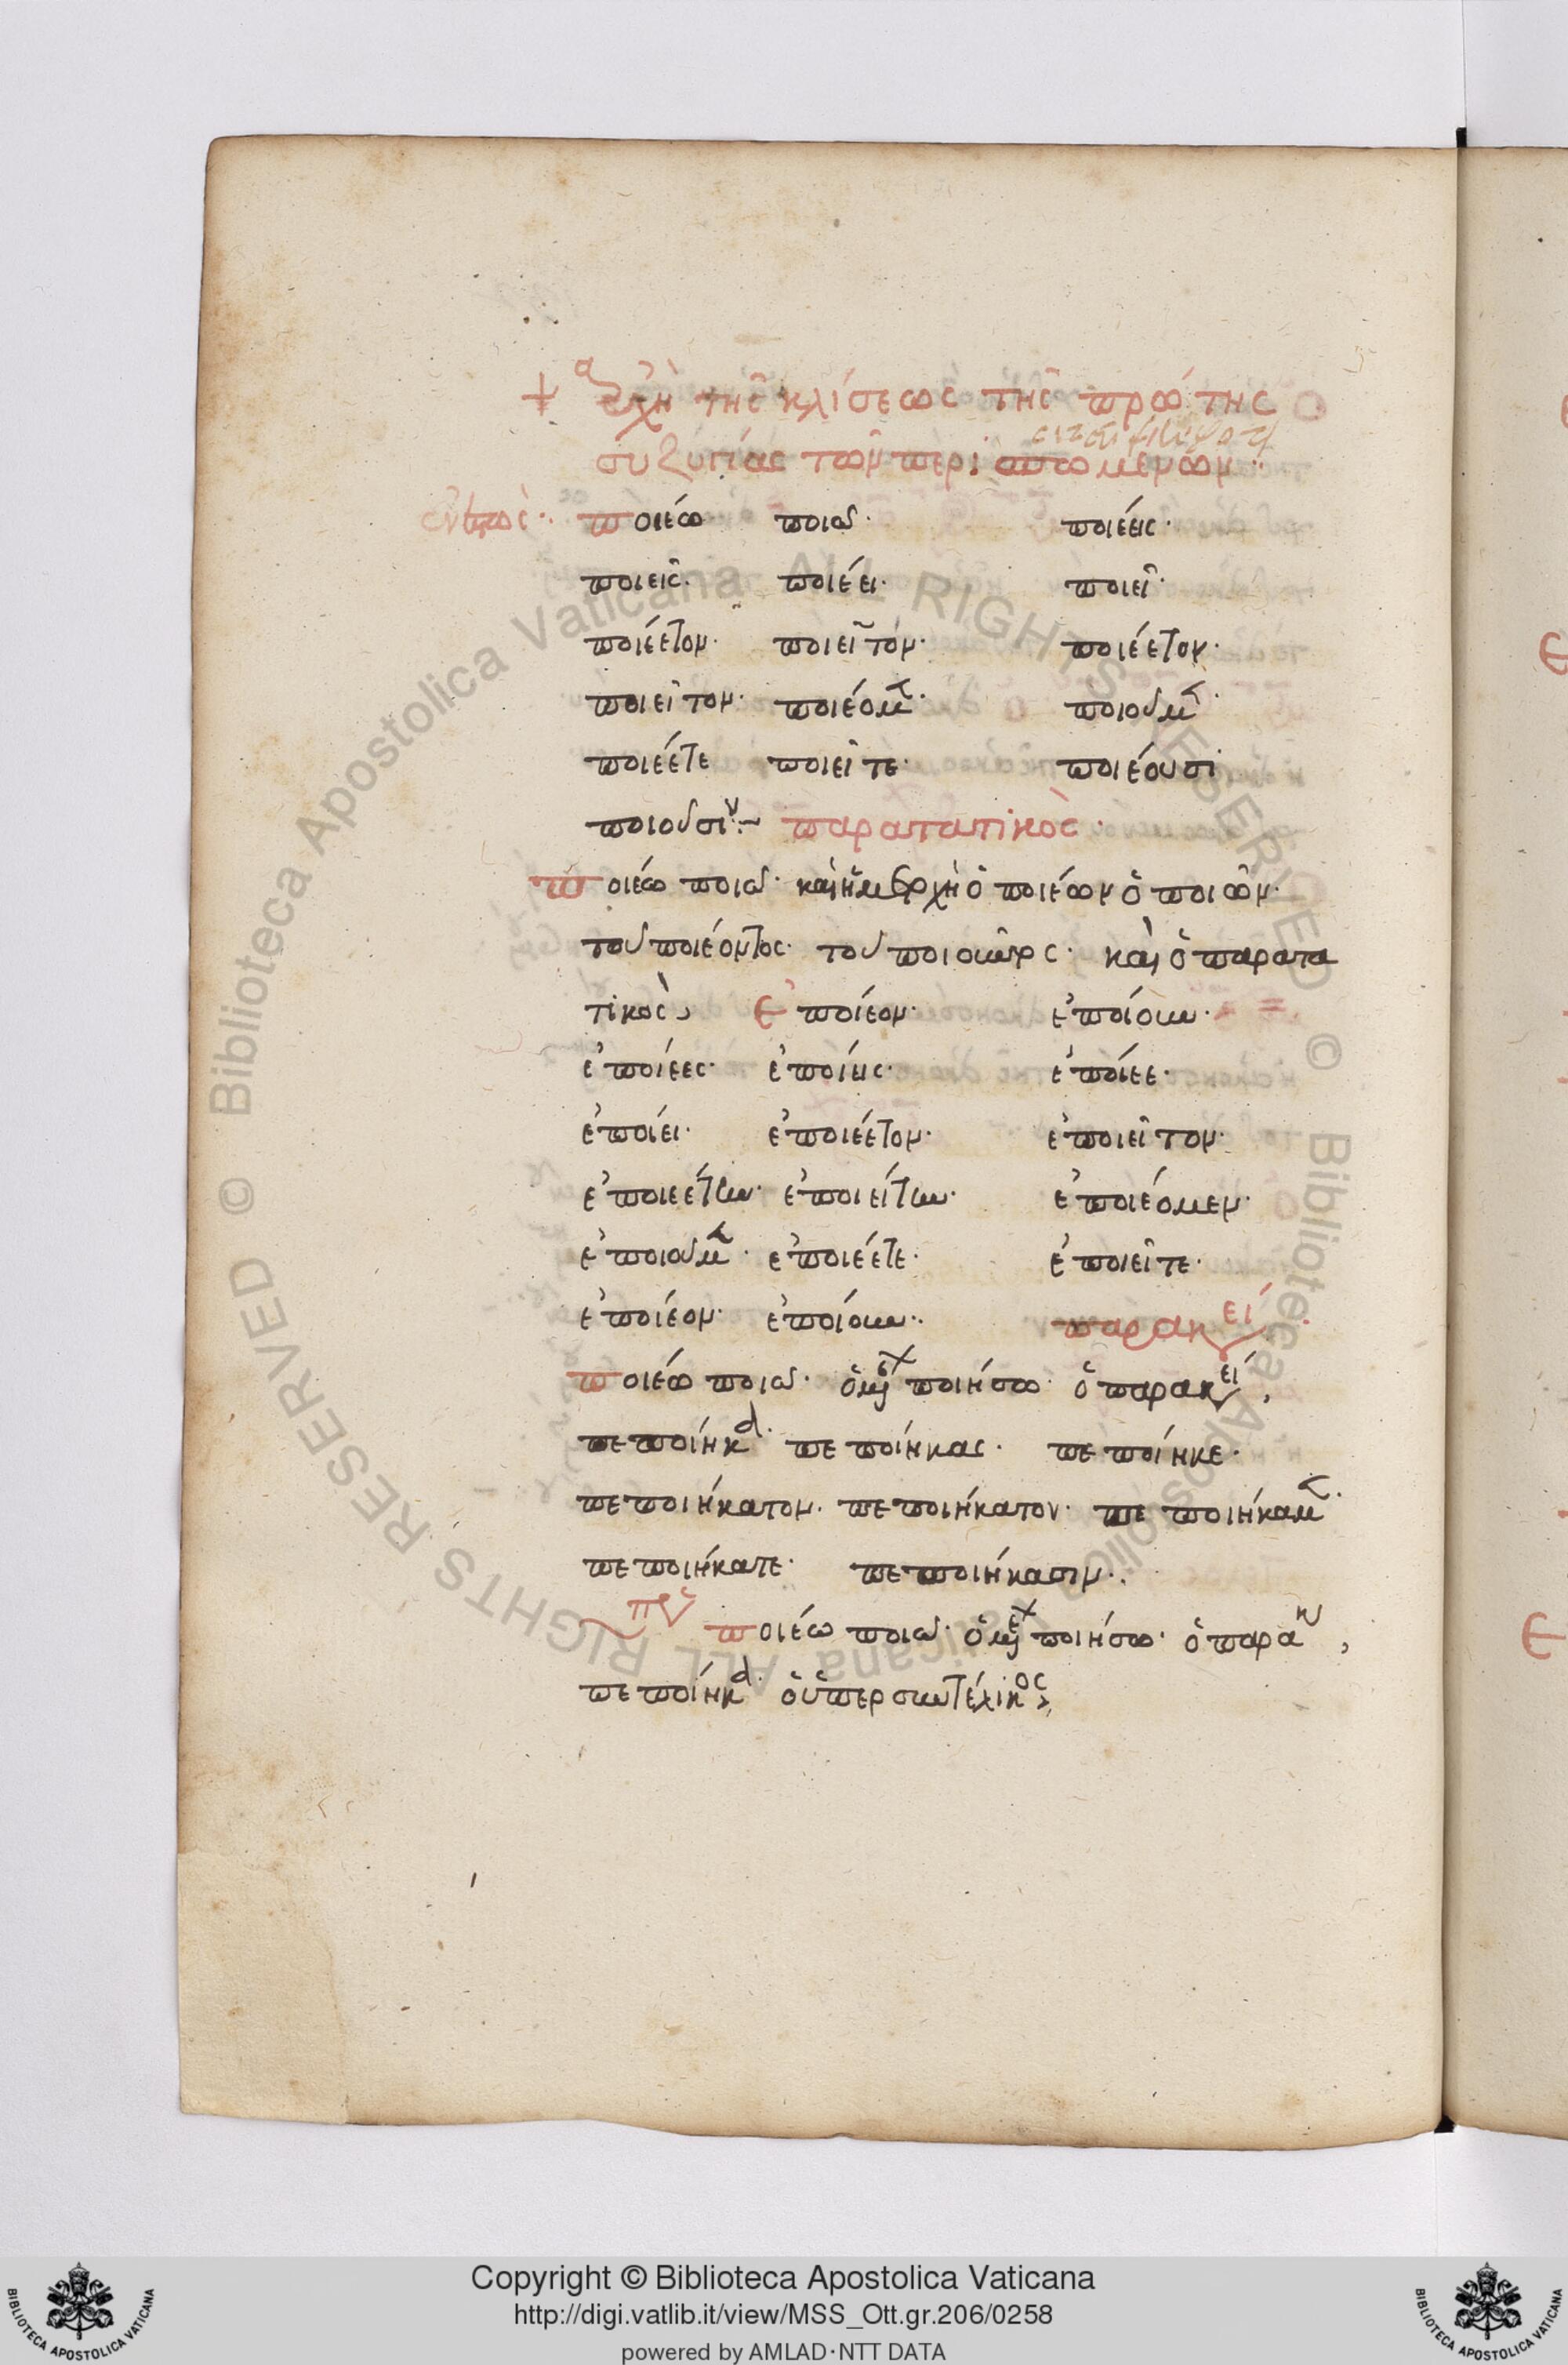 + ἀρχὴ τῆς κλίσεως τῆς πρώτης
συζυγίας τῶν περισπωμένων:
ποιέω ποιῶ· ποιέεις·
ποιεῖς· ποιέει· ποιεῖ·
ποιέετον· ποιεῖτον· ποιέετον·
ποιεῖτον· ποιέομεν· ποιοῦμεν·
ποιέετε ποιεῖτε· ποιέουσι
ποιοῦσιν:~ παρατατικὸς·
ποιέω ποιῶ· καὶ ἡ μετοχὴ ὁ ποιέων ὁ ποιῶν·
τοῦ ποιέοντος· τοῦ ποιοῦντος· καὶ ὁ παρατα
τικὸς, ἐποίεον· ἐποίουν·
ἐποίεες· ἐποίεις· ἐποίεε·
ἐποίει· ἐποιέετον· ἐποιεῖτον·
ἐποιεέτην· ἐποιείτην· ἐποιέομεν·
ἐποιοῦμεν· ἐποιέετε· ἐποιεῖτε·
ἐποίεον· ἐποίουν:· παρακεί·
ποιέω ποιῶ· ὁ μέλλων ποιήσω· ὁ παρακεί,
πεποίηκα· πεποίηκας· πεποίηκε·
πεποιήκατον· πεποιήκατον· πεποιήκαμεν·
πεποιήκατε· πεποιήκασιν:·
ποιέω ποιῶ· ὁ μέλλων ποιήσω· ὁ παρακ,
πεποίηκα· ὁ ὑπερσυντέλικος,
Copyright © Biblioteca Apostolica Vaticana
http://digi.vatlib.it/view/MSS_Ott.gr.206/0258
powered by AMLAD·NTT DATA
BIBLIOTECA APOSTOLICA VATICANA
BIBLIOTECA APOSTOLICA VATICANA
© Biblioteca Apostolica Vaticana ALL RIGHTS RESERVED © Biblioteca Apostolica Vaticana ALL RIGHTS RESERVED